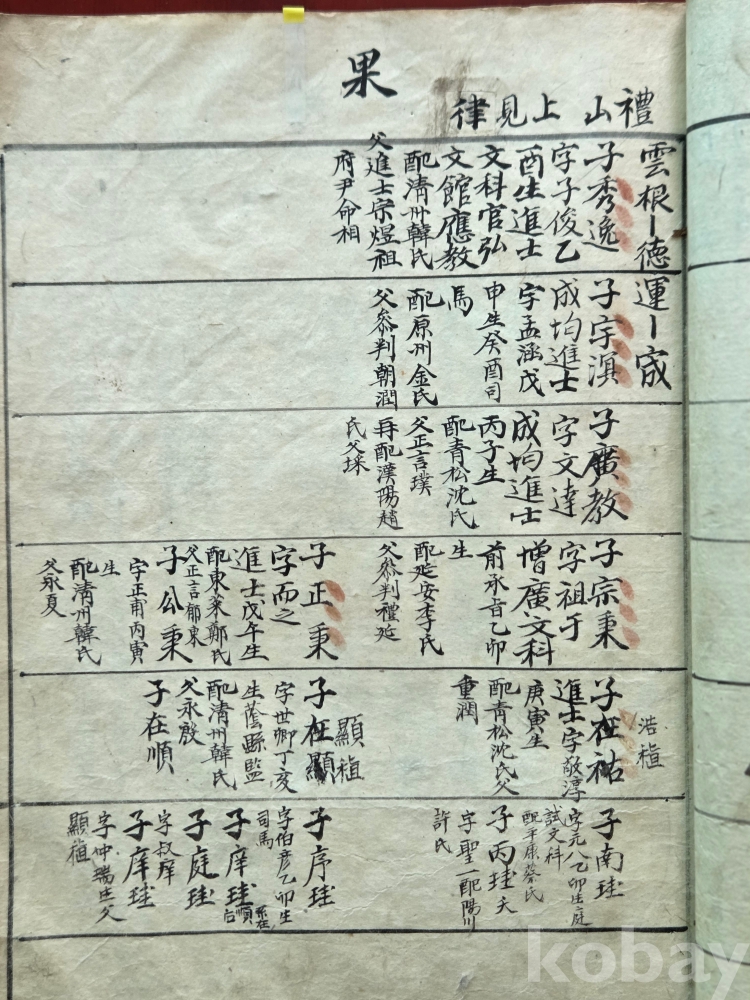 果
禮山 上見律
雲根一德運一宬
子秀逸
字子俊乙
酉生進士
文科官弘
文館應教
配淸州韓氏
父進士宗煜祖
府尹命相
子宇溟
成均進士
字孟涵戊
申生癸酉司
馬
配原州金氏
父參判朝潤
子廣教
字文達
成均進士
丙子生
配青松沈氏
父正言璞
再配漢陽趙
氏父埰
子宗秉
字祖于
增廣文科
前承旨乙卯
生
配延安李氏
父參判禮延
子正秉
字而之
進士戊午生
配東萊鄭氏
父正言郁東
子公秉
字正甫丙寅
生
配淸州韓氏
父永夏
浩稙
子在祐
進士字敬淳
庚寅生
配青松沈氏父
重潤
顯稙
子在顯
字世卿丁亥
生蔭縣監
配淸州韓氏
父永殷
子在順
子南珪
字元八乙卯生庭
試文科
配平康蔡氏
子丙珪夭
字聖一配陽川
許氏
子序珪
字伯彦乙卯生
司馬
子庠珪
系在順后
子庭珪
字叔庠
子庠珪
字仲瑞生父
顯稙
kobay